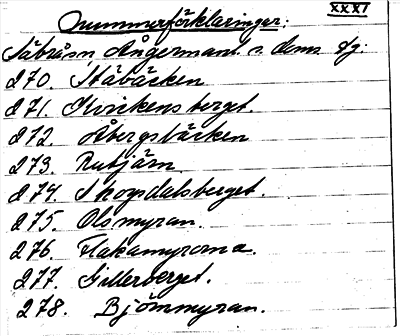 XXXI
Nummerförklaringar:
Säbråsn Ångermanl. s. dems. fg.
270. Stäbäcken
271. Klvickensberget.
272. Åbergsbäcken
273. Rutjärn
274. Skogsdalsberget.
275. Olsmyran.
276. Flakamyrorna.
277. Gillerberget.
278. Björnmyran.